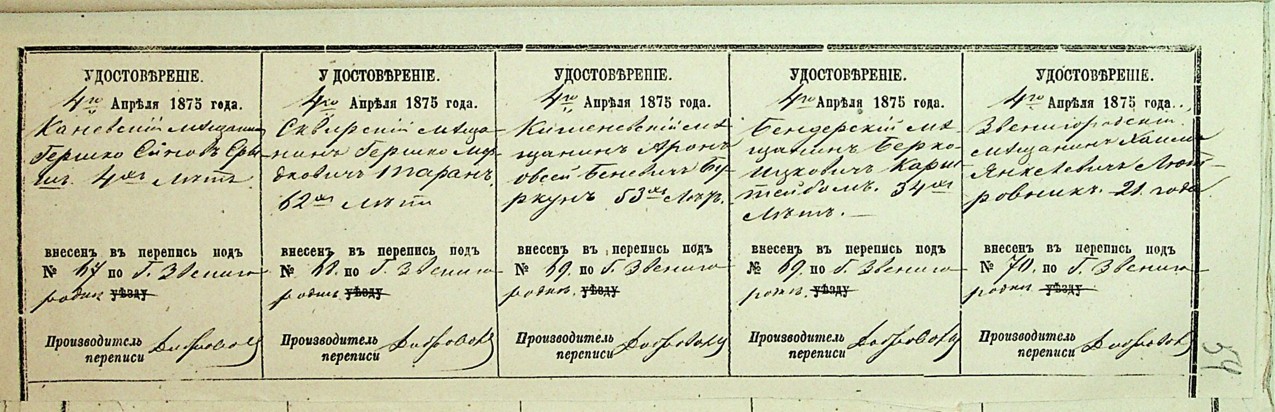 УДОСТОВѢРЕНІЕ.
4го Апрѣля 1875 года.
Каневскій мѣщанинъ
Гершко
лѣтъ
внесенъ въ перепись подъ
№ 67 по г. Звениго-
родкѣ уѣзду
Производитель
переписи
УДОСТОВѢРЕНІЕ.
4го Апрѣля 1875 года.
Сквирскій мѣща-
нинъ Гершко Мор-
дковичъ Таранъ
62 лѣтъ
внесенъ въ перепись подъ
№ 68. по г. Звениго-
родкѣ уѣзду
Производитель
переписи
УДОСТОВѢРЕНІЕ.
4го Апрѣля 1875 года.
Кишеневскій мѣ-
щанинъ Аронъ
Беневичъ Бер-
кунъ 53
внесенъ въ перепись подъ
№ 69. по г. Звениго-
родкѣ. уѣзду
Производитель
переписи
УДОСТОВѢРЕНІЕ.
4го Апрѣля 1875 года.
Бендерскій мѣ-
щанинъ Берко
Ицковичъ
34
лѣтъ. —
внесенъ въ перепись подъ
№ 69. по г. Звениго-
родкѣ. уѣзду
Производитель
переписи
УДОСТОВѢРЕНІЕ.
4го Апрѣля 1875 года.
Звенигородскій
мѣщанинъ Хаимъ
Янкелевичъ
21. года
внесенъ въ перепись подъ
№ 70. по г. Звениго-
родкѣ уѣзду
Производитель
переписи
54